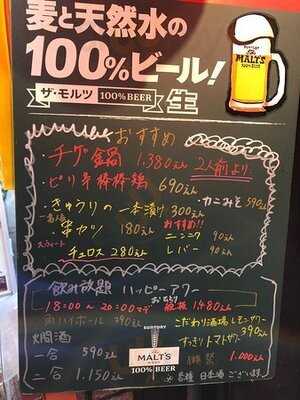 麦と天然水の
100%ビール!
ザ・モルツ 100%BEER 生
SUNTORY
The
MALT'S
100% BEER
おすすめ
チゲ鍋 1.380えん 2人前より
ピリ辛棒棒鶏 690えん
きゅうりの一本漬け 300えん カニみそ 590えん
一番人気 串カツ 180えん おすすめ!!
ニンニク 90えん
スウィート チュロス 280えん レバー 90えん
飲み放題 ハッピーアワー
18:00~20:00まで おひとり 税抜 1,480えん
角ハイボール 390えん こだわり酒場レモンサワー
390えん
燗酒 すっきりトマトサワー
一合 590えん
二合 1.150えん 1.000えん
SUNTORY
The
MALT'S
100% BEER
※各種 日本酒ございます。